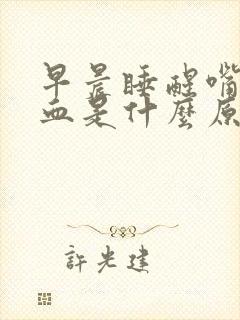 早晨睡醒嘴
血是什麼原
許光建